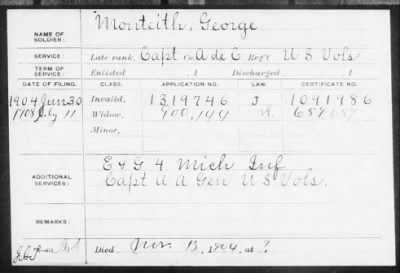 NAME OF SOLDIER: Monteith, George
SERVICE: Late rank, Capt Co. A de C Reg't U S Vols
TERM OF SERVICE: Enlisted , 1 Discharged , 1
DATE OF FILING. CLASS. APPLICATION NO. LAW. CERTIFICATE NO.
1904 Jun 30 Invalid, 1319746 J 1091986
1908 July 11 Widow, 900,199 657,087
Minor,
ADDITIONAL SERVICES: E & G 4 Mich Inf
Capt A A Gen U S Vols.
REMARKS:
Died Nov. 13, 1904, at ?